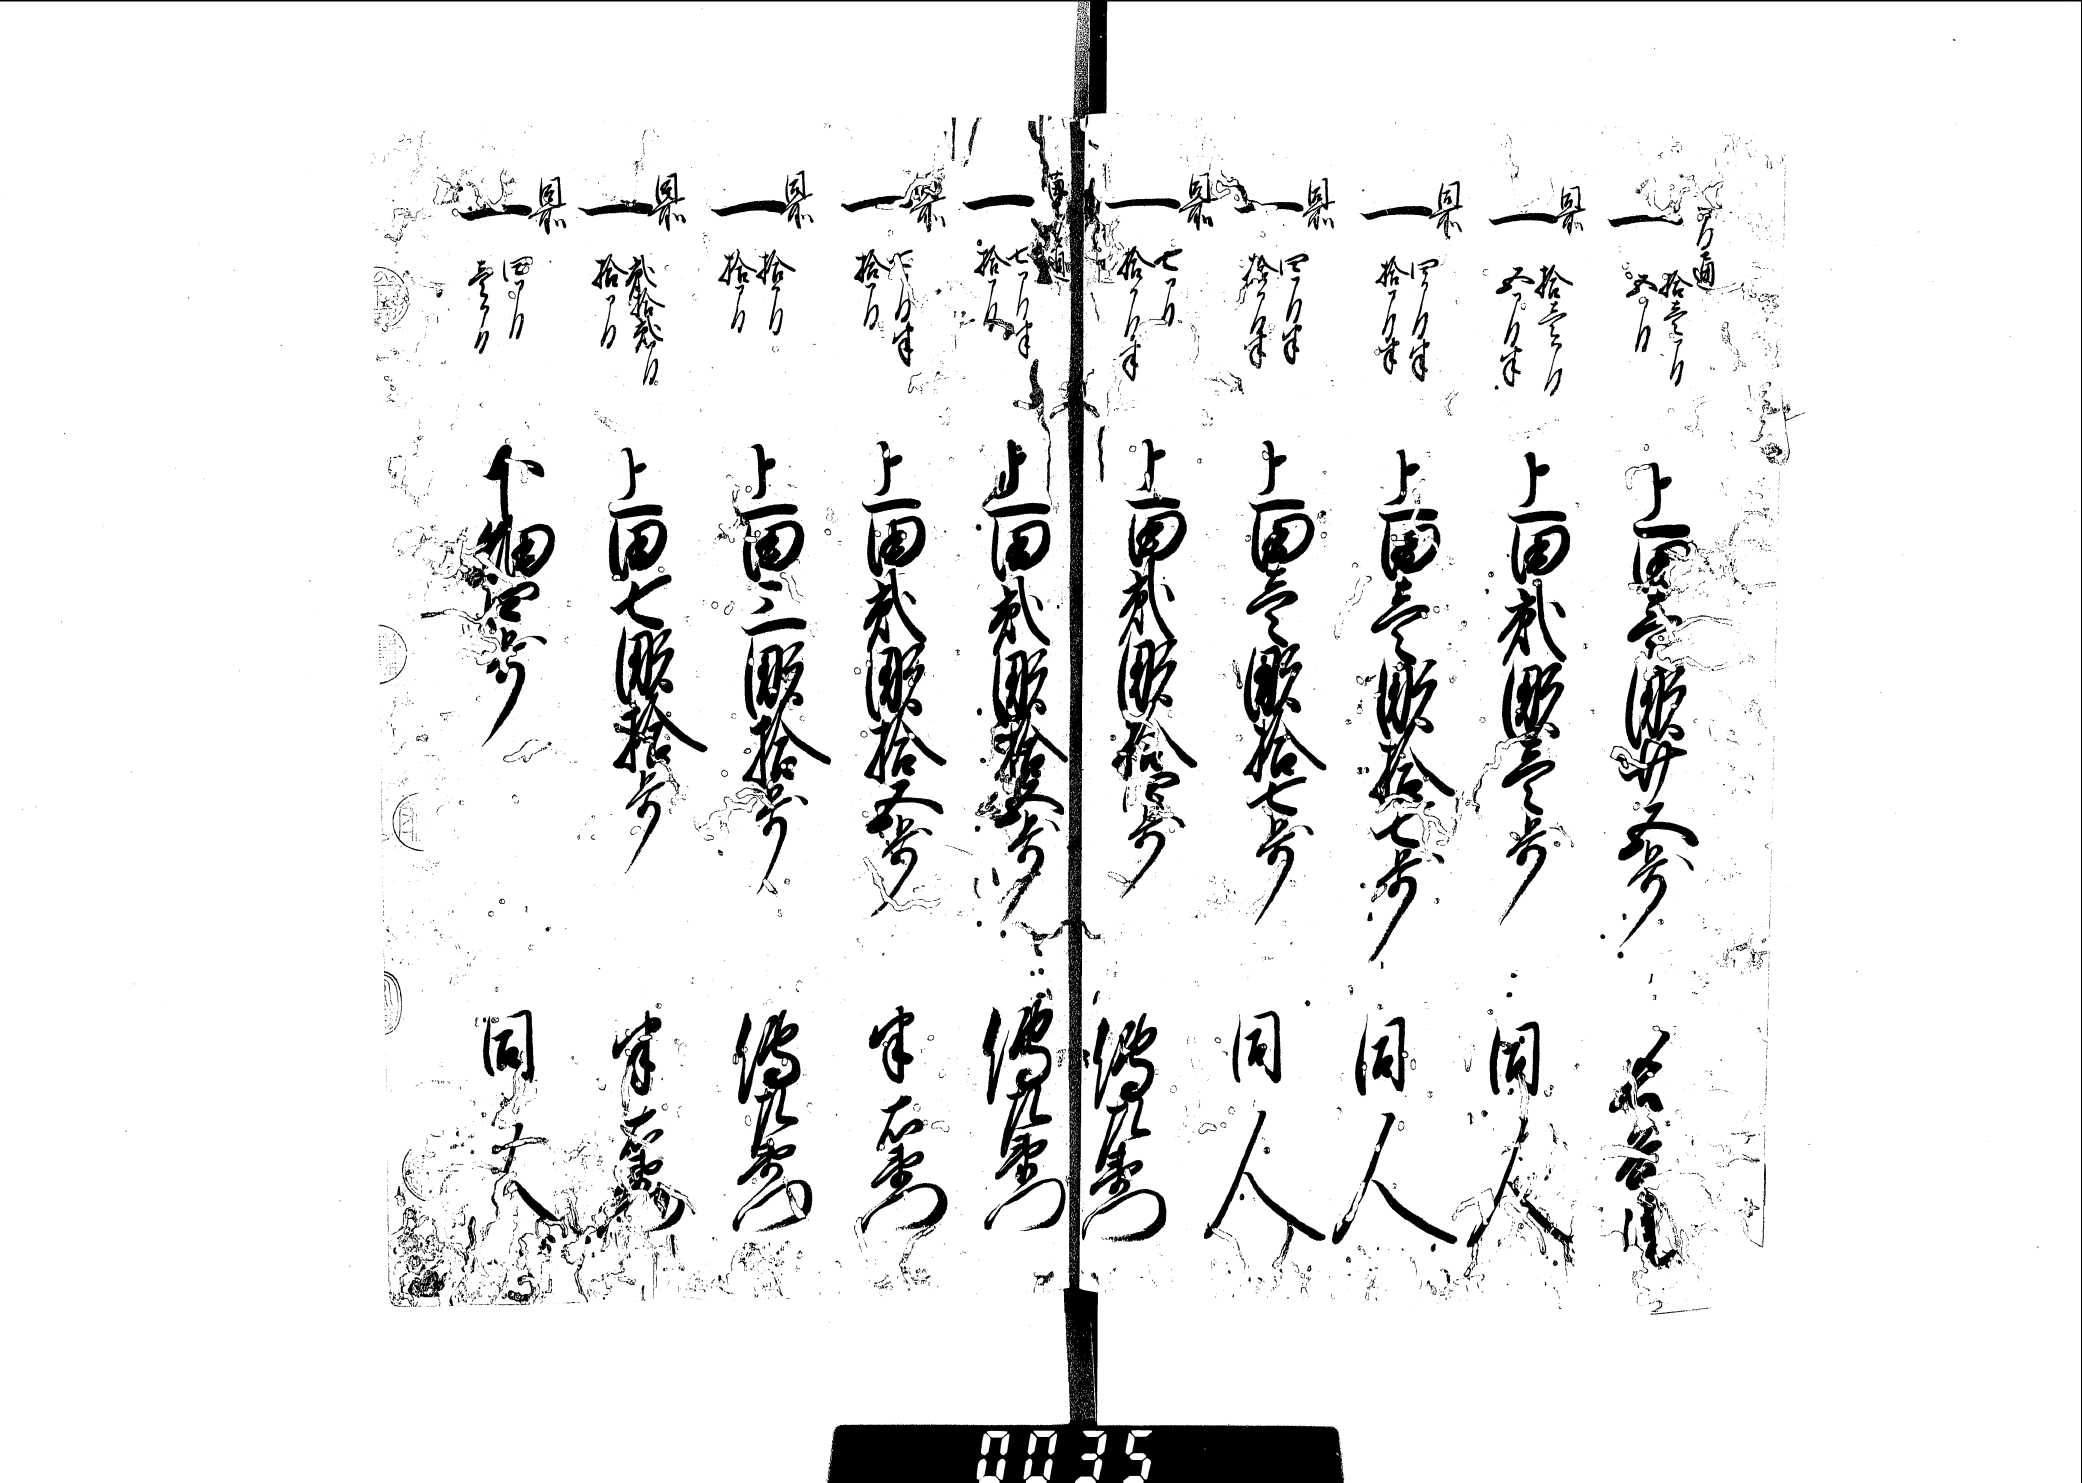 一 拾壱間 五間 上田壱畝廿五歩
同所 一 拾壱間 五間半 上田弐畝壱歩 同人
同所 一 四間半 拾間半 上田壱畝拾七歩 同人
同所 一 四間半 拾間半 上田壱畝拾七歩 同人
同所 一 七間 拾間半 上田弐畝拾四歩 傳左衛門
一 七間半 拾間 上田弐畝拾五歩 傳左衛門
同所 一 七間半 拾間 上田弐畝拾五歩 半右衛門
同所 一 拾間 拾間 上田三畝拾歩 傳左衛門
同所 一 弐拾弐間 拾間 上田七畝拾歩 半右衛門
同所 一 四間 壱間 下畑四歩 同人
0035